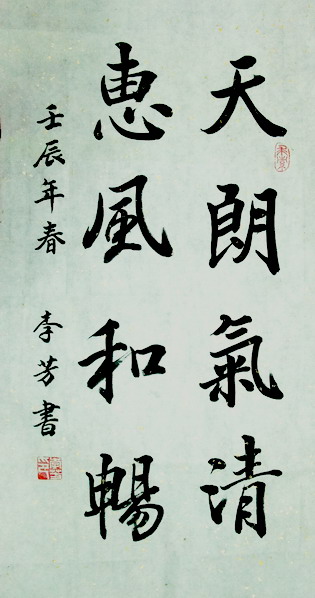 天朗氣清
惠風和暢
壬辰年春 李芳書